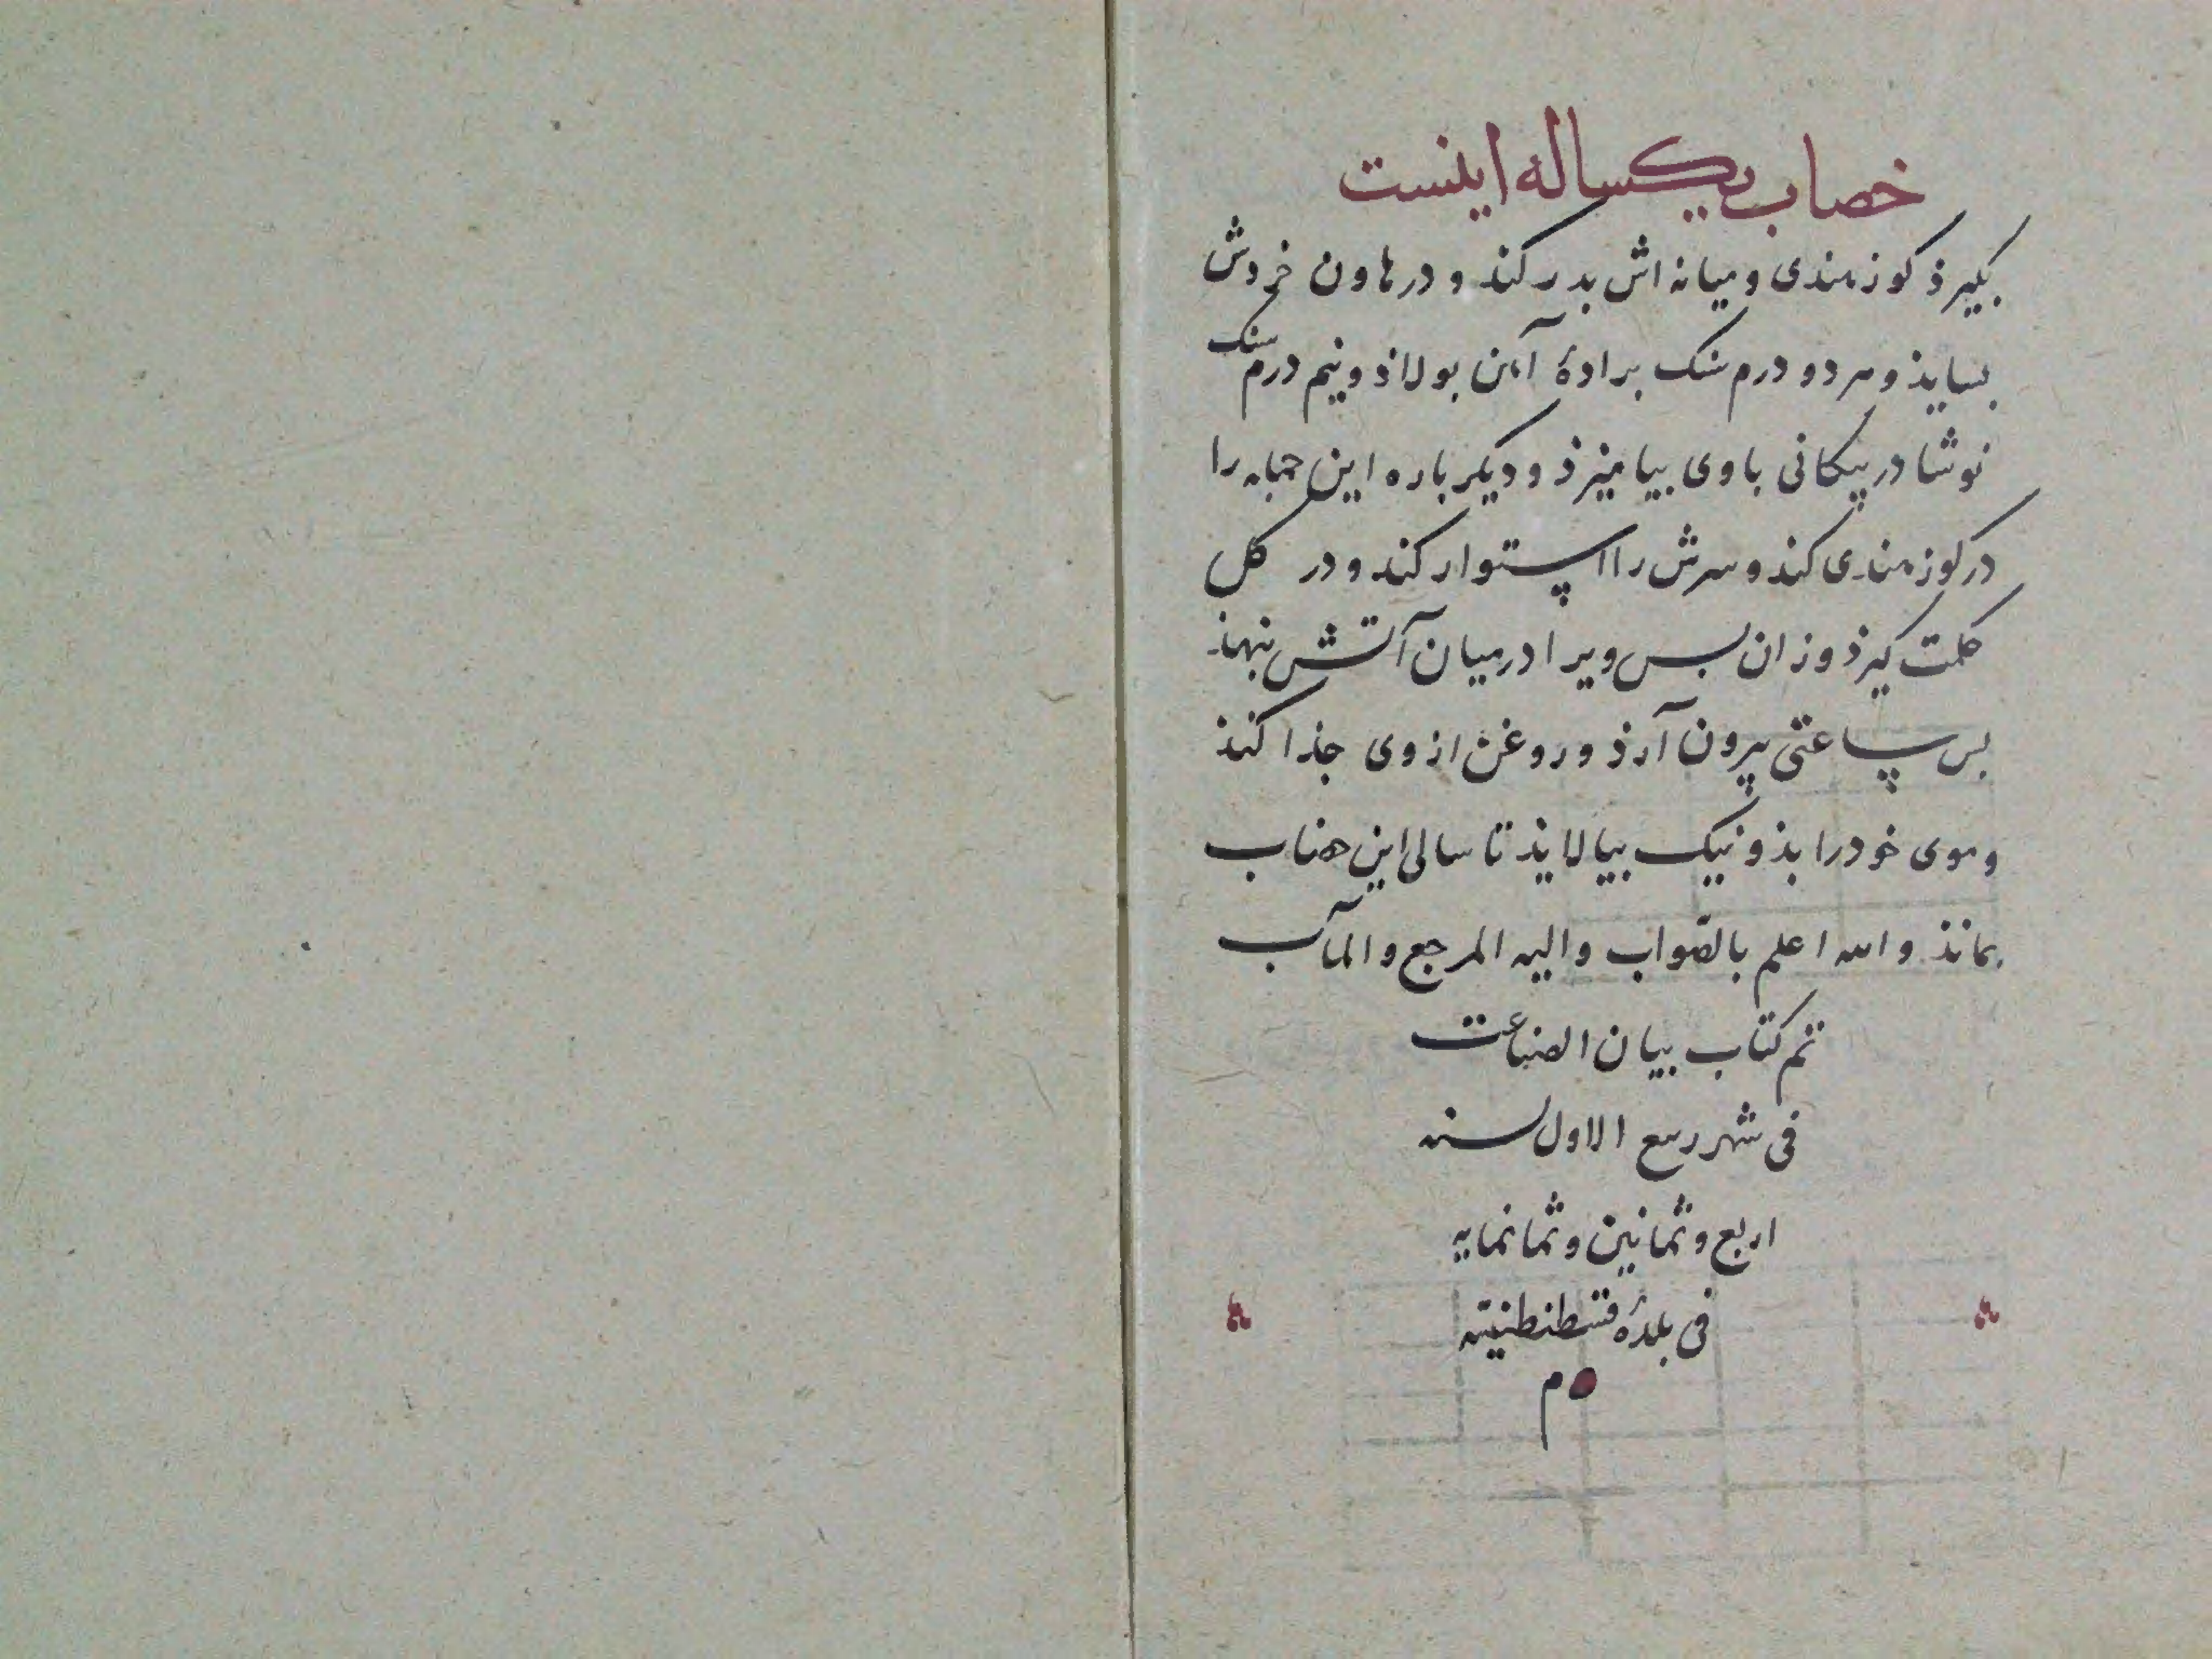 خصاب یکساله اینست
بکیرذ کوز هندی و میانه اش بدر کند و در هاون خردش
بسایذ و هر دو درم سنک برادهٔ آهن بولاذ و نیم درم سنک
نوشادر پیکانی با وی بیامیزذ و دیکر باره این جمله را
در کوز هندی کند و سرش را استوار کند و در کل
حکمت کیرذ وزان بس ویرا در میان آتش بنهذ
بس ساعتی بیرون آرذ و روغن از وی جذا کنذ
و موی خود را بذو نیک بیالایذ تا سالی این خضاب
بمانذ والله اعلم بالصّواب والیه المرجع والمآب
تم کتاب بیان الصناعت
فی شهر ربیع الاول سنه
اربع وثمانین وثمانمایه
فی بلدهٔ قسطنطنیّه
م